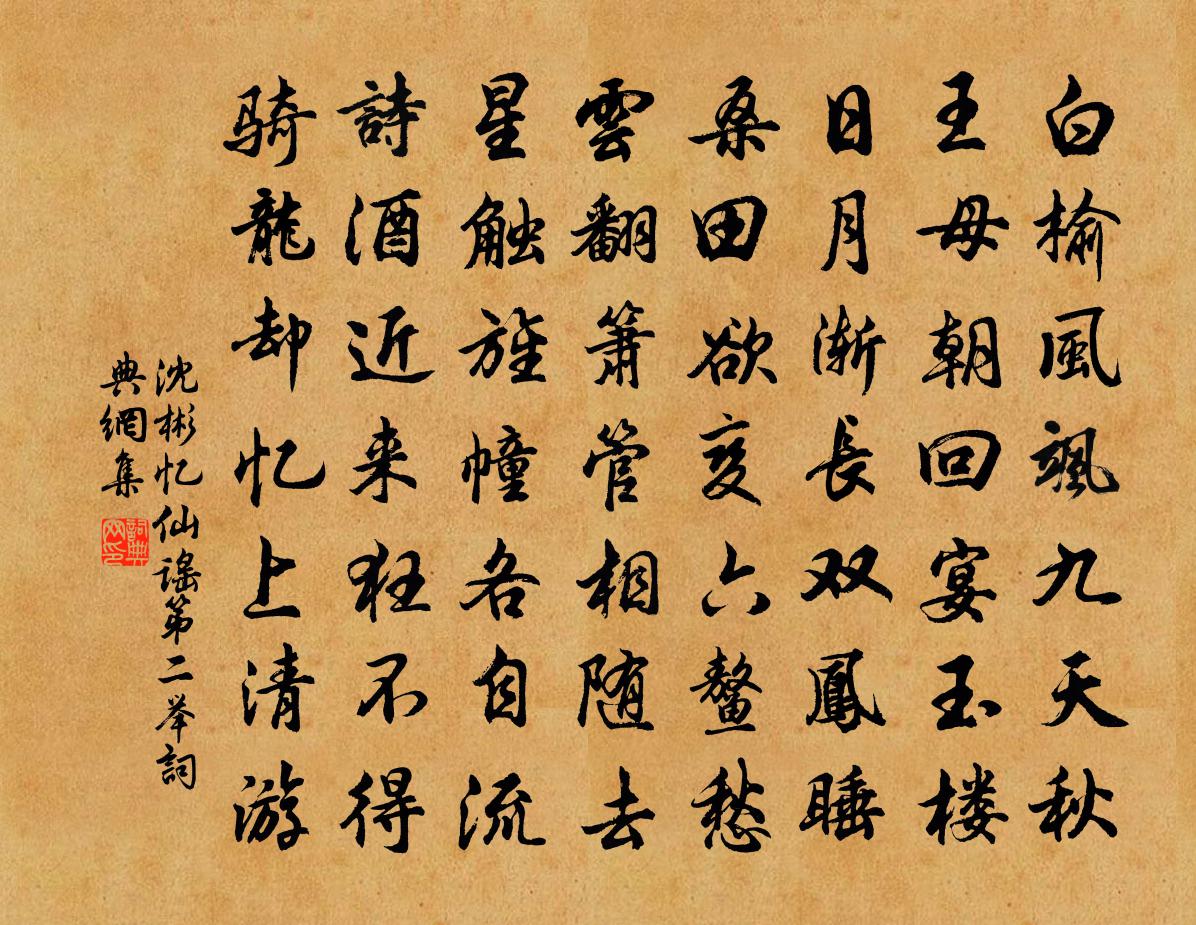 白榆風飒九天秋
王母朝回宴玉楼
日月渐長双鳳睡
桑田欲变六鳌愁
雲翻箫管相随去
星触旌幢各自流
詩酒近来狂不得
骑龍却忆上清游
沈彬忆仙谣第二举詞
典網集
詞典
网印